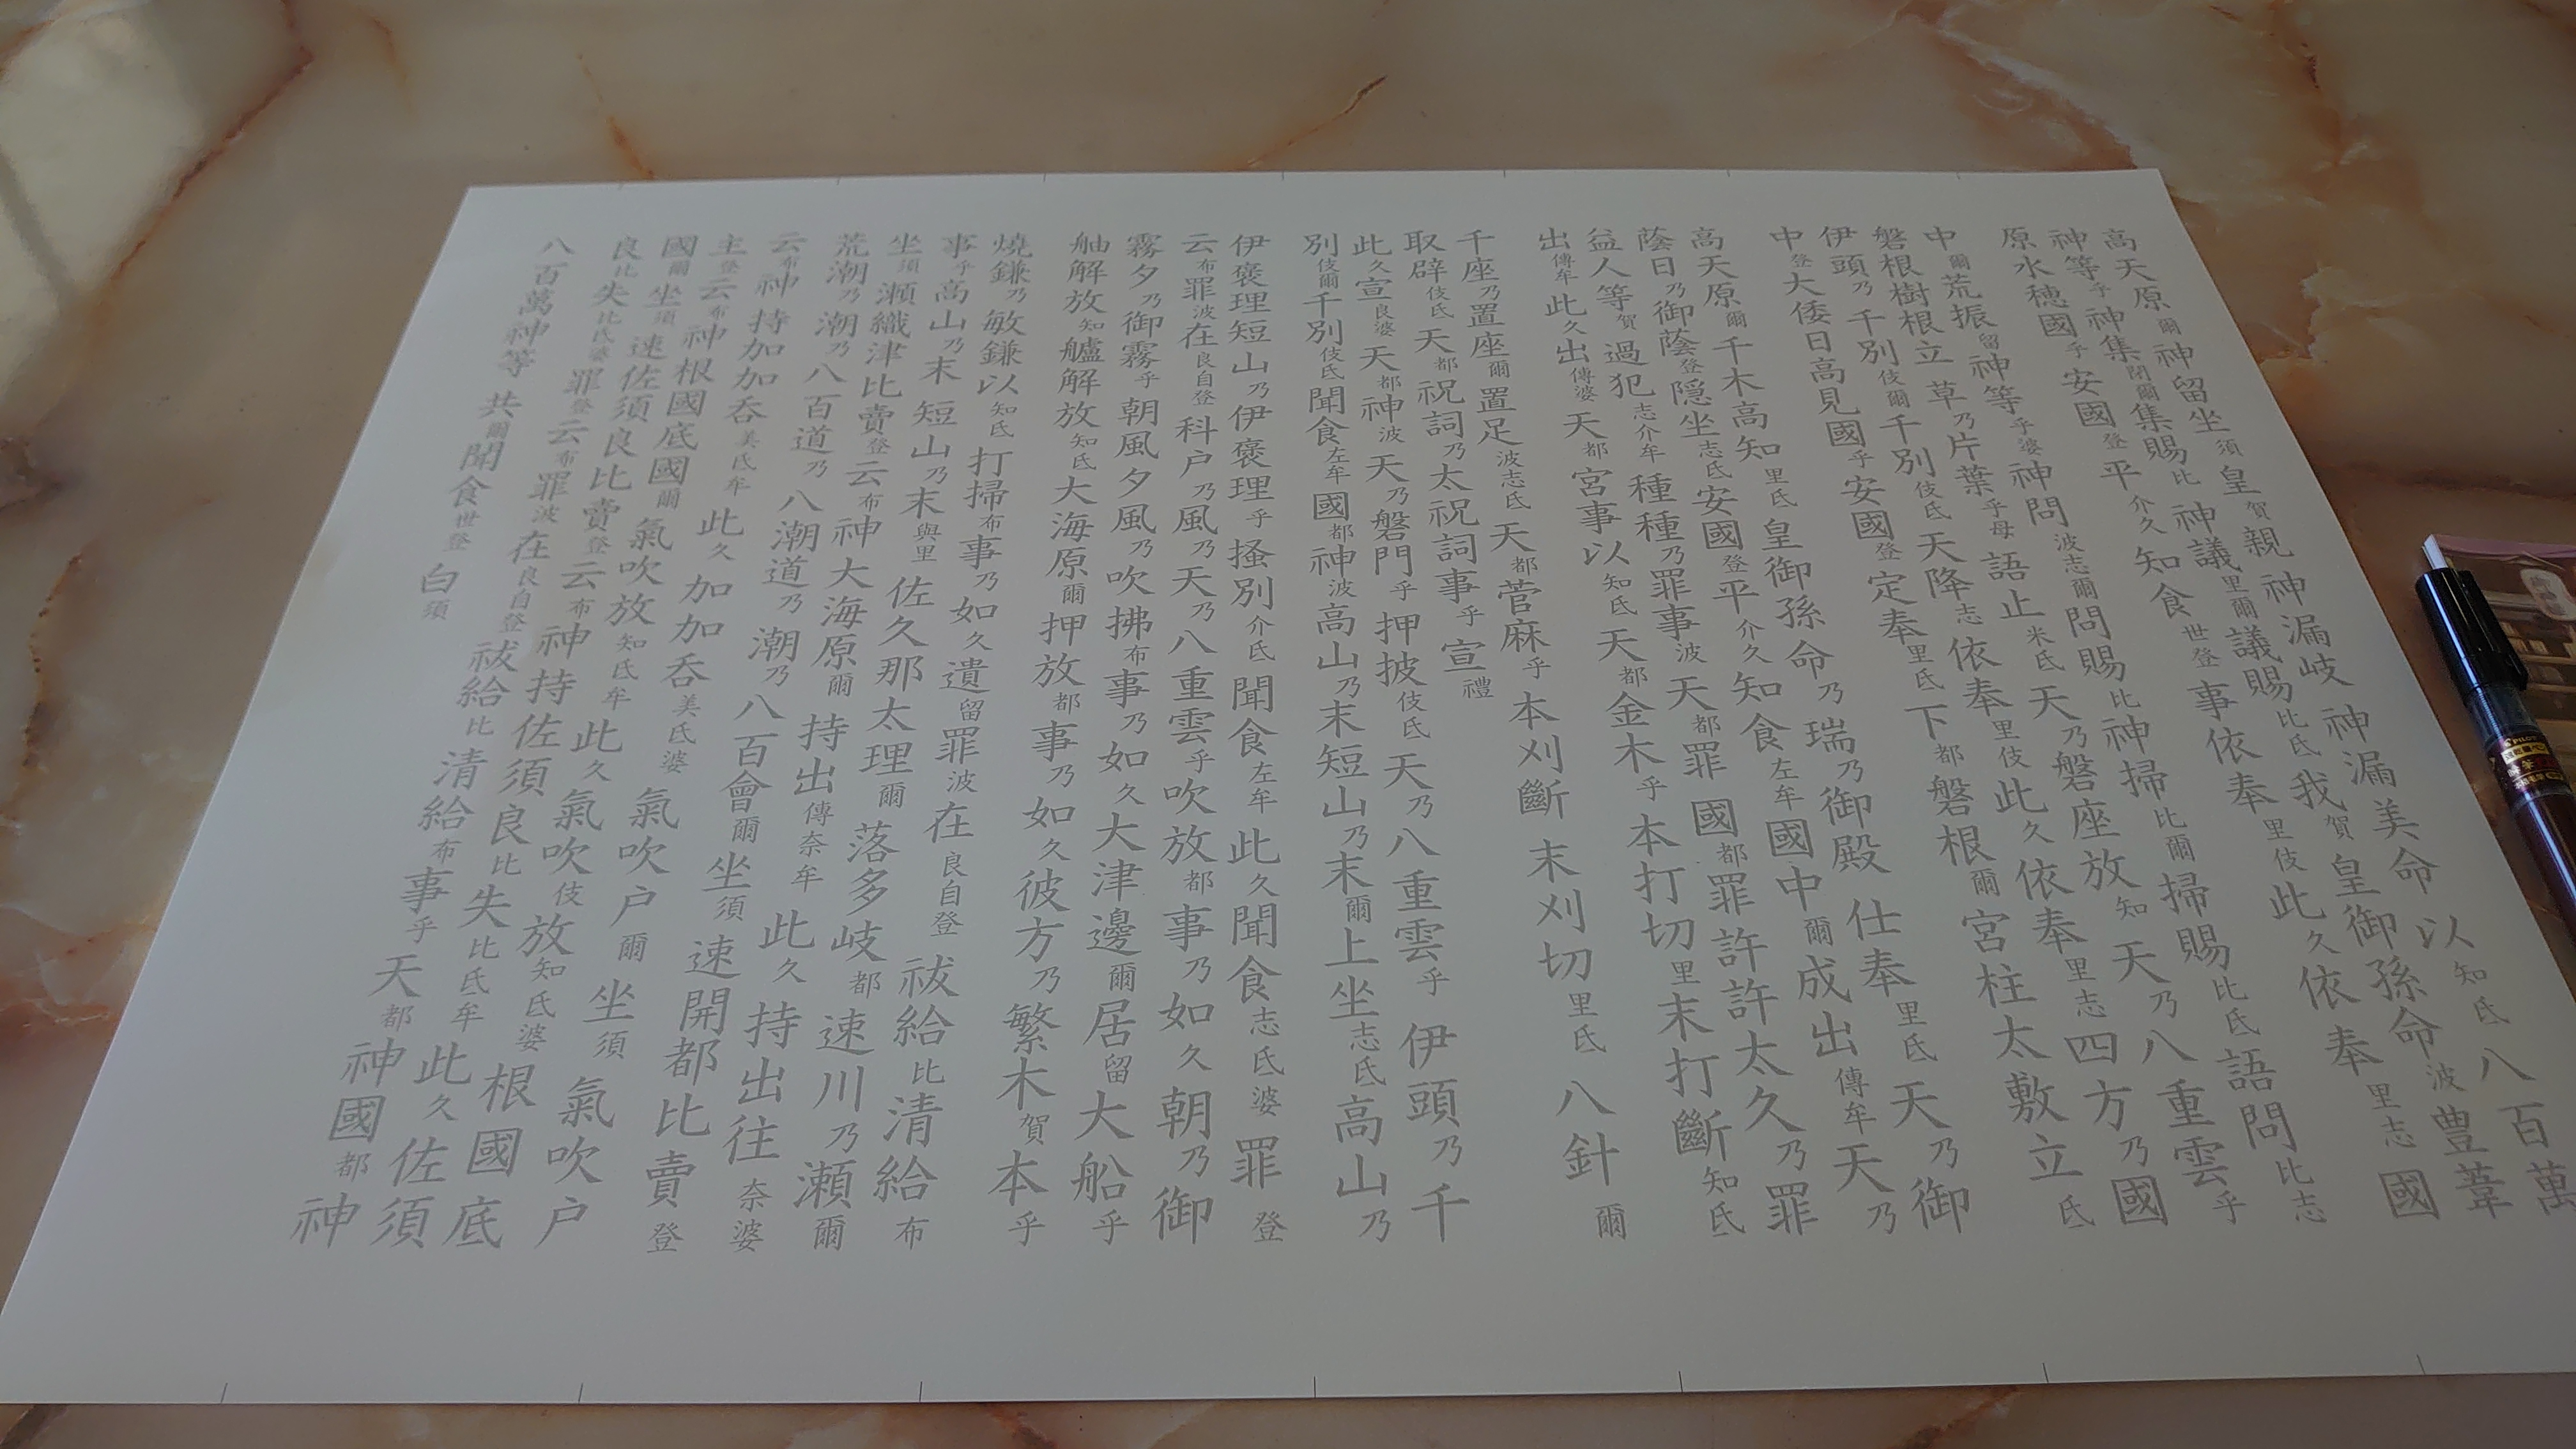 高天原爾神留坐須皇賀親神漏岐神漏美命以知氐八百萬
神等乎神集閉爾集賜比神議里爾議賜比氐我賀皇御孫命波豊葦
原水穗國乎安國登平介久知食世登事依奉里伎此久依奉里志國
中爾荒振留神等乎婆神問波志爾問賜比神掃比爾掃賜比氐語問比志
磐根樹根立草乃片葉乎母語止米氐天乃磐座放知天乃八重雲乎
伊頭乃千別伎爾千別伎氐天降志依奉里伎此久依奉里志四方乃國
中登大倭日高見國乎安國登定奉里氐下都磐根爾宮柱太敷立氐
高天原爾千木高知里氐皇御孫命乃瑞乃御殿仕奉里氐天乃御
蔭日乃御蔭登隠坐志氐安國登平介久知食左牟國中爾成出傳牟天乃
益人等賀過犯志介牟種種乃罪事波天都罪國都罪許許太久乃罪
出傳牟此久出傳婆天都宮事以知氐天都金木乎本打切里末打斷知氐
千座乃置座爾置足波志氐天都菅麻乎本刈斷末刈切里氐八針爾
取辟伎氐天都祝詞乃太祝詞事乎宣禮
此久宣良婆天都神波天乃磐門乎押披伎氐天乃八重雲乎伊頭乃千
別伎爾千別伎氐聞食左牟國都神波高山乃末短山乃末爾上坐志氐高山乃
伊褒理短山乃伊褒理乎掻別介氐聞食左牟此久聞食志氐婆罪登
云布罪波在良自登科户乃風乃天乃八重雲乎吹放都事乃如久朝乃御
霧夕乃御霧乎朝風夕風乃吹拂布事乃如久大津邊爾居留大船乎
舳解放知艫解放知氐大海原爾押放都事乃如久彼方乃繁木賀本乎
燒鎌乃敏鎌以知氐打掃布事乃如久遺留罪波在良自登祓給比清給布
事乎高山乃末短山乃末與里佐久那太理爾落多岐都速川乃瀬爾
坐須瀬織津比賣登云布神大海原爾持出傳奈牟此久持出往奈婆
荒潮乃潮乃八百道乃八潮道乃潮乃八百會爾坐須速開都比賣登
云布神持加加呑美氐牟此久加加呑美氐婆氣吹户爾坐須氣吹户
主登云布神根國底國爾氣吹放知氐牟此久氣吹伎放知氐婆根國底
國爾坐須速佐須良比賣登云布神持佐須良比失比氐牟此久佐須
良比失比氐婆罪登云布罪波在良自登祓給比清給布事乎天都神國都神
八百萬神等共爾聞食世登白須
PILOT